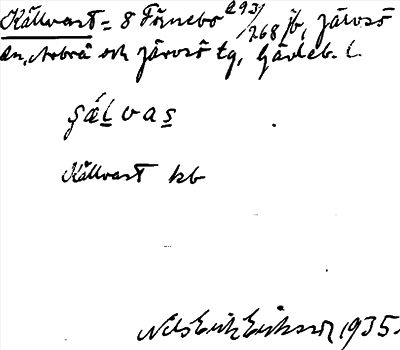 Källvast = 8 Förnebo 293/268 jb, Järvsö
sn, Arbrå och Järvsö tg, Gävleb. l.
gǽlvas
Källvast kb
Nils Erik Eriksson 1935.